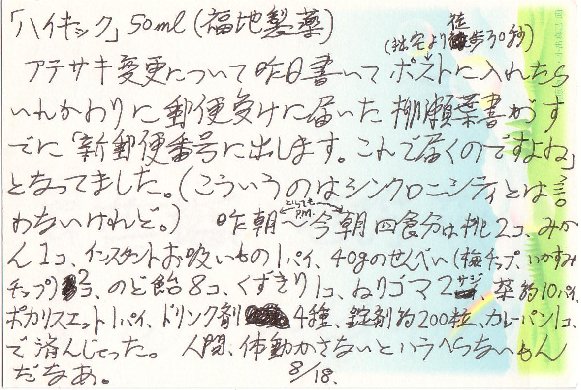 「ハイキック」50ml(福地製薬)
(拙宅より徒歩30秒)
アテサキ変更について昨日書いてポストに入れたら
いれかわりに郵便受けに届いた柳瀬葉書がす
でに「新郵便番号に出します。これで届くのですよね」
となってました。(こういうのはシンクロニシティとは言
わないけれど。) 昨朝〜今朝四食分は桃2コ、みか
といってもP.M.
ん1コ、インスタントお吸いもの1パイ、40gのせんべい(梅チップ、いかすみ
チップ)2コ、のど飴8コ、くずきり1コ、ねりゴマ2サジ 茶約10パイ
ポカリスエット1パイ、ドリンク剤4種、錠剤約200粒、カレーパン1コ、
で済んじゃった。人間、体動かさないとハラへらないもん
だなあ。 8/18.